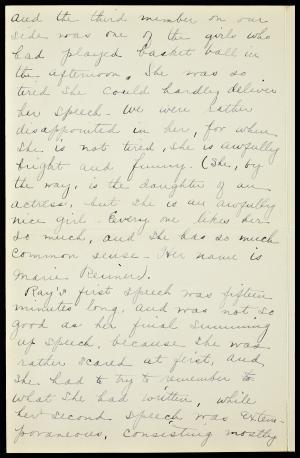 and the third member on our
side was one of the girls who
had played basket ball in
the afternoon. She was so
tired she could hardly deliver
her speech. We were rather
disappointed in her, for when
she is not tired, she is awfully
bright and funny. (She, by
the way, is the daughter of an
actress, but she is an awfully
nice girl. Every one likes her
so much, and she has so much
common sense. Her name is
Marie
Ray's first speech was fifteen
minutes long, and was not so
good as her final summing
up speech, because she was
rather scared at first, and
she had to try to remember to
what she had written, while
her second speech was extem-
poraneous, consisting mostly